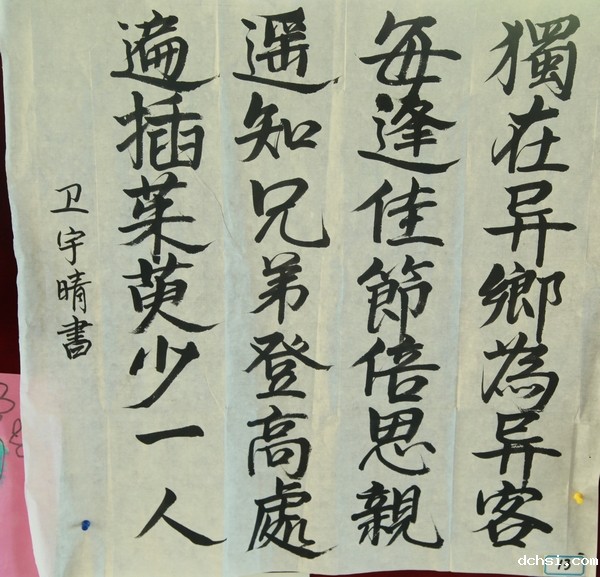 獨在异鄉為异客
每逢佳節倍思親
遥知兄弟登高處
遍插茱萸少一人
卫宇晴書
dchsi.com